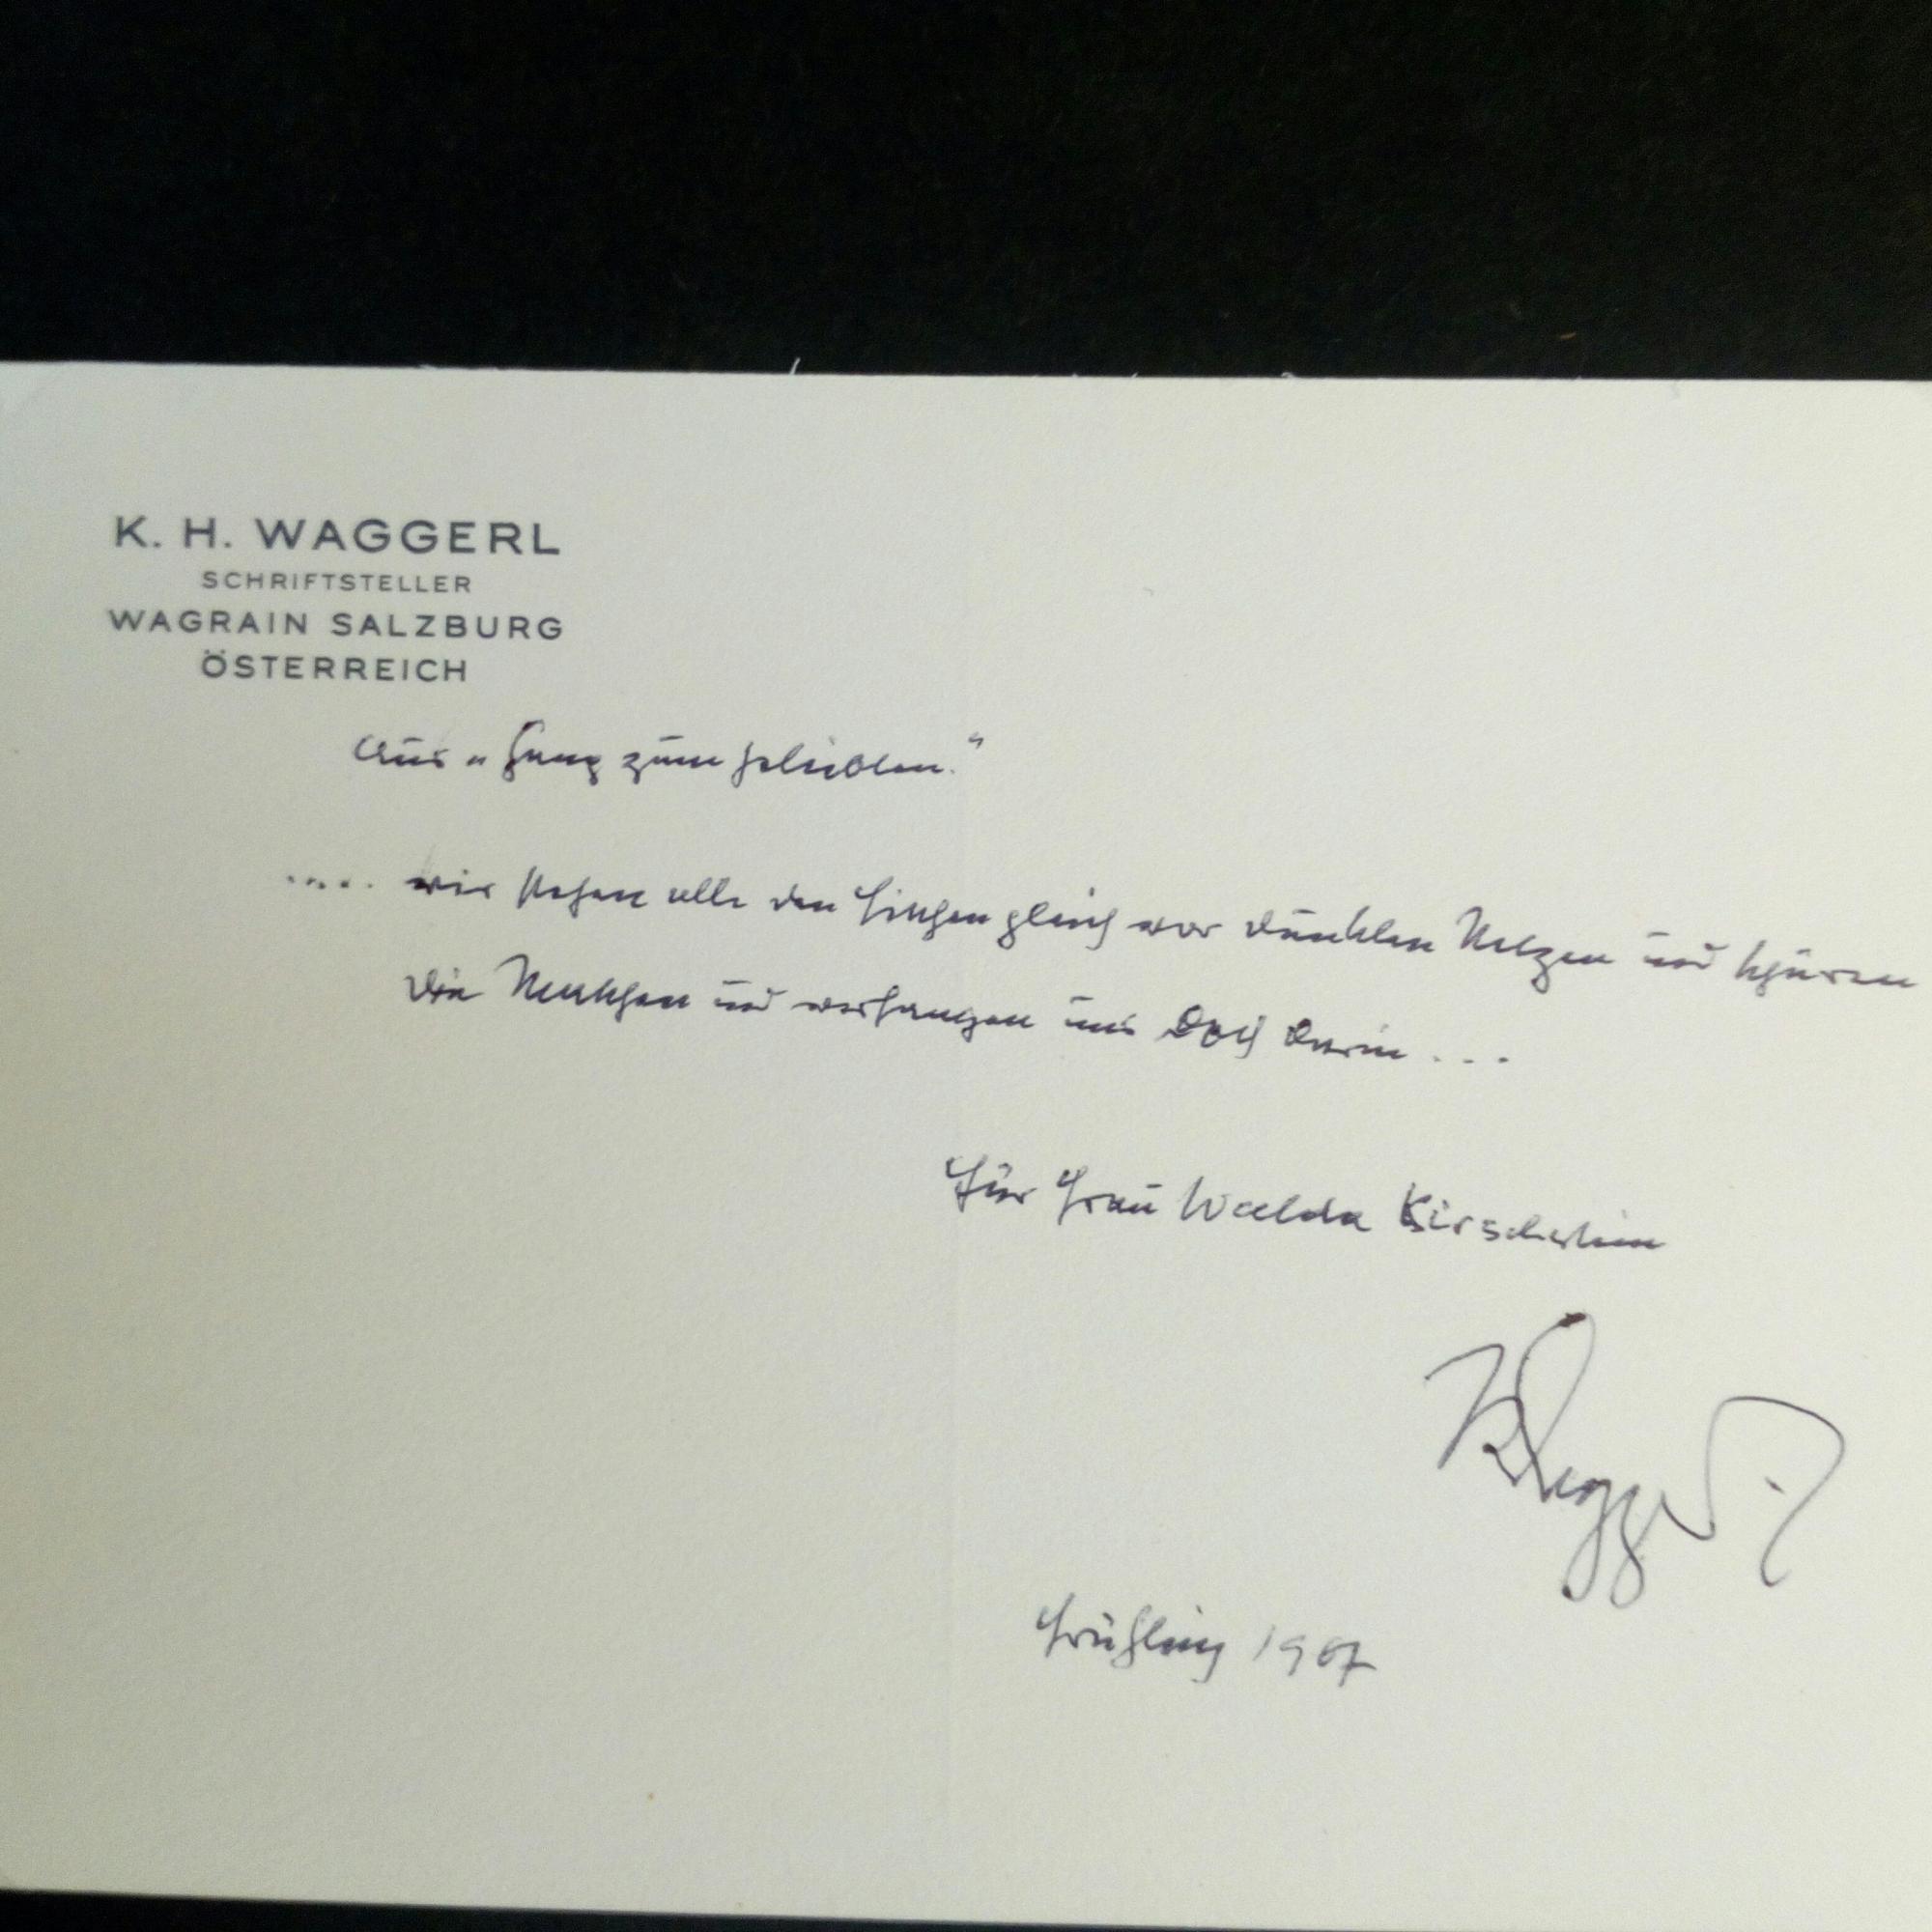 K. H. WAGGERL
SCHRIFTSTELLER
WAGRAIN SALZBURG
ÖSTERREICH
Aus „Gang zum Geliebten."
..... wir stehen alle den Fischen gleich vor dunklen Netzen und spüren
die Maschen und verfangen uns doch darin ...
Für Frau Walda Kirschstein
KHWaggerl
Frühling 1967